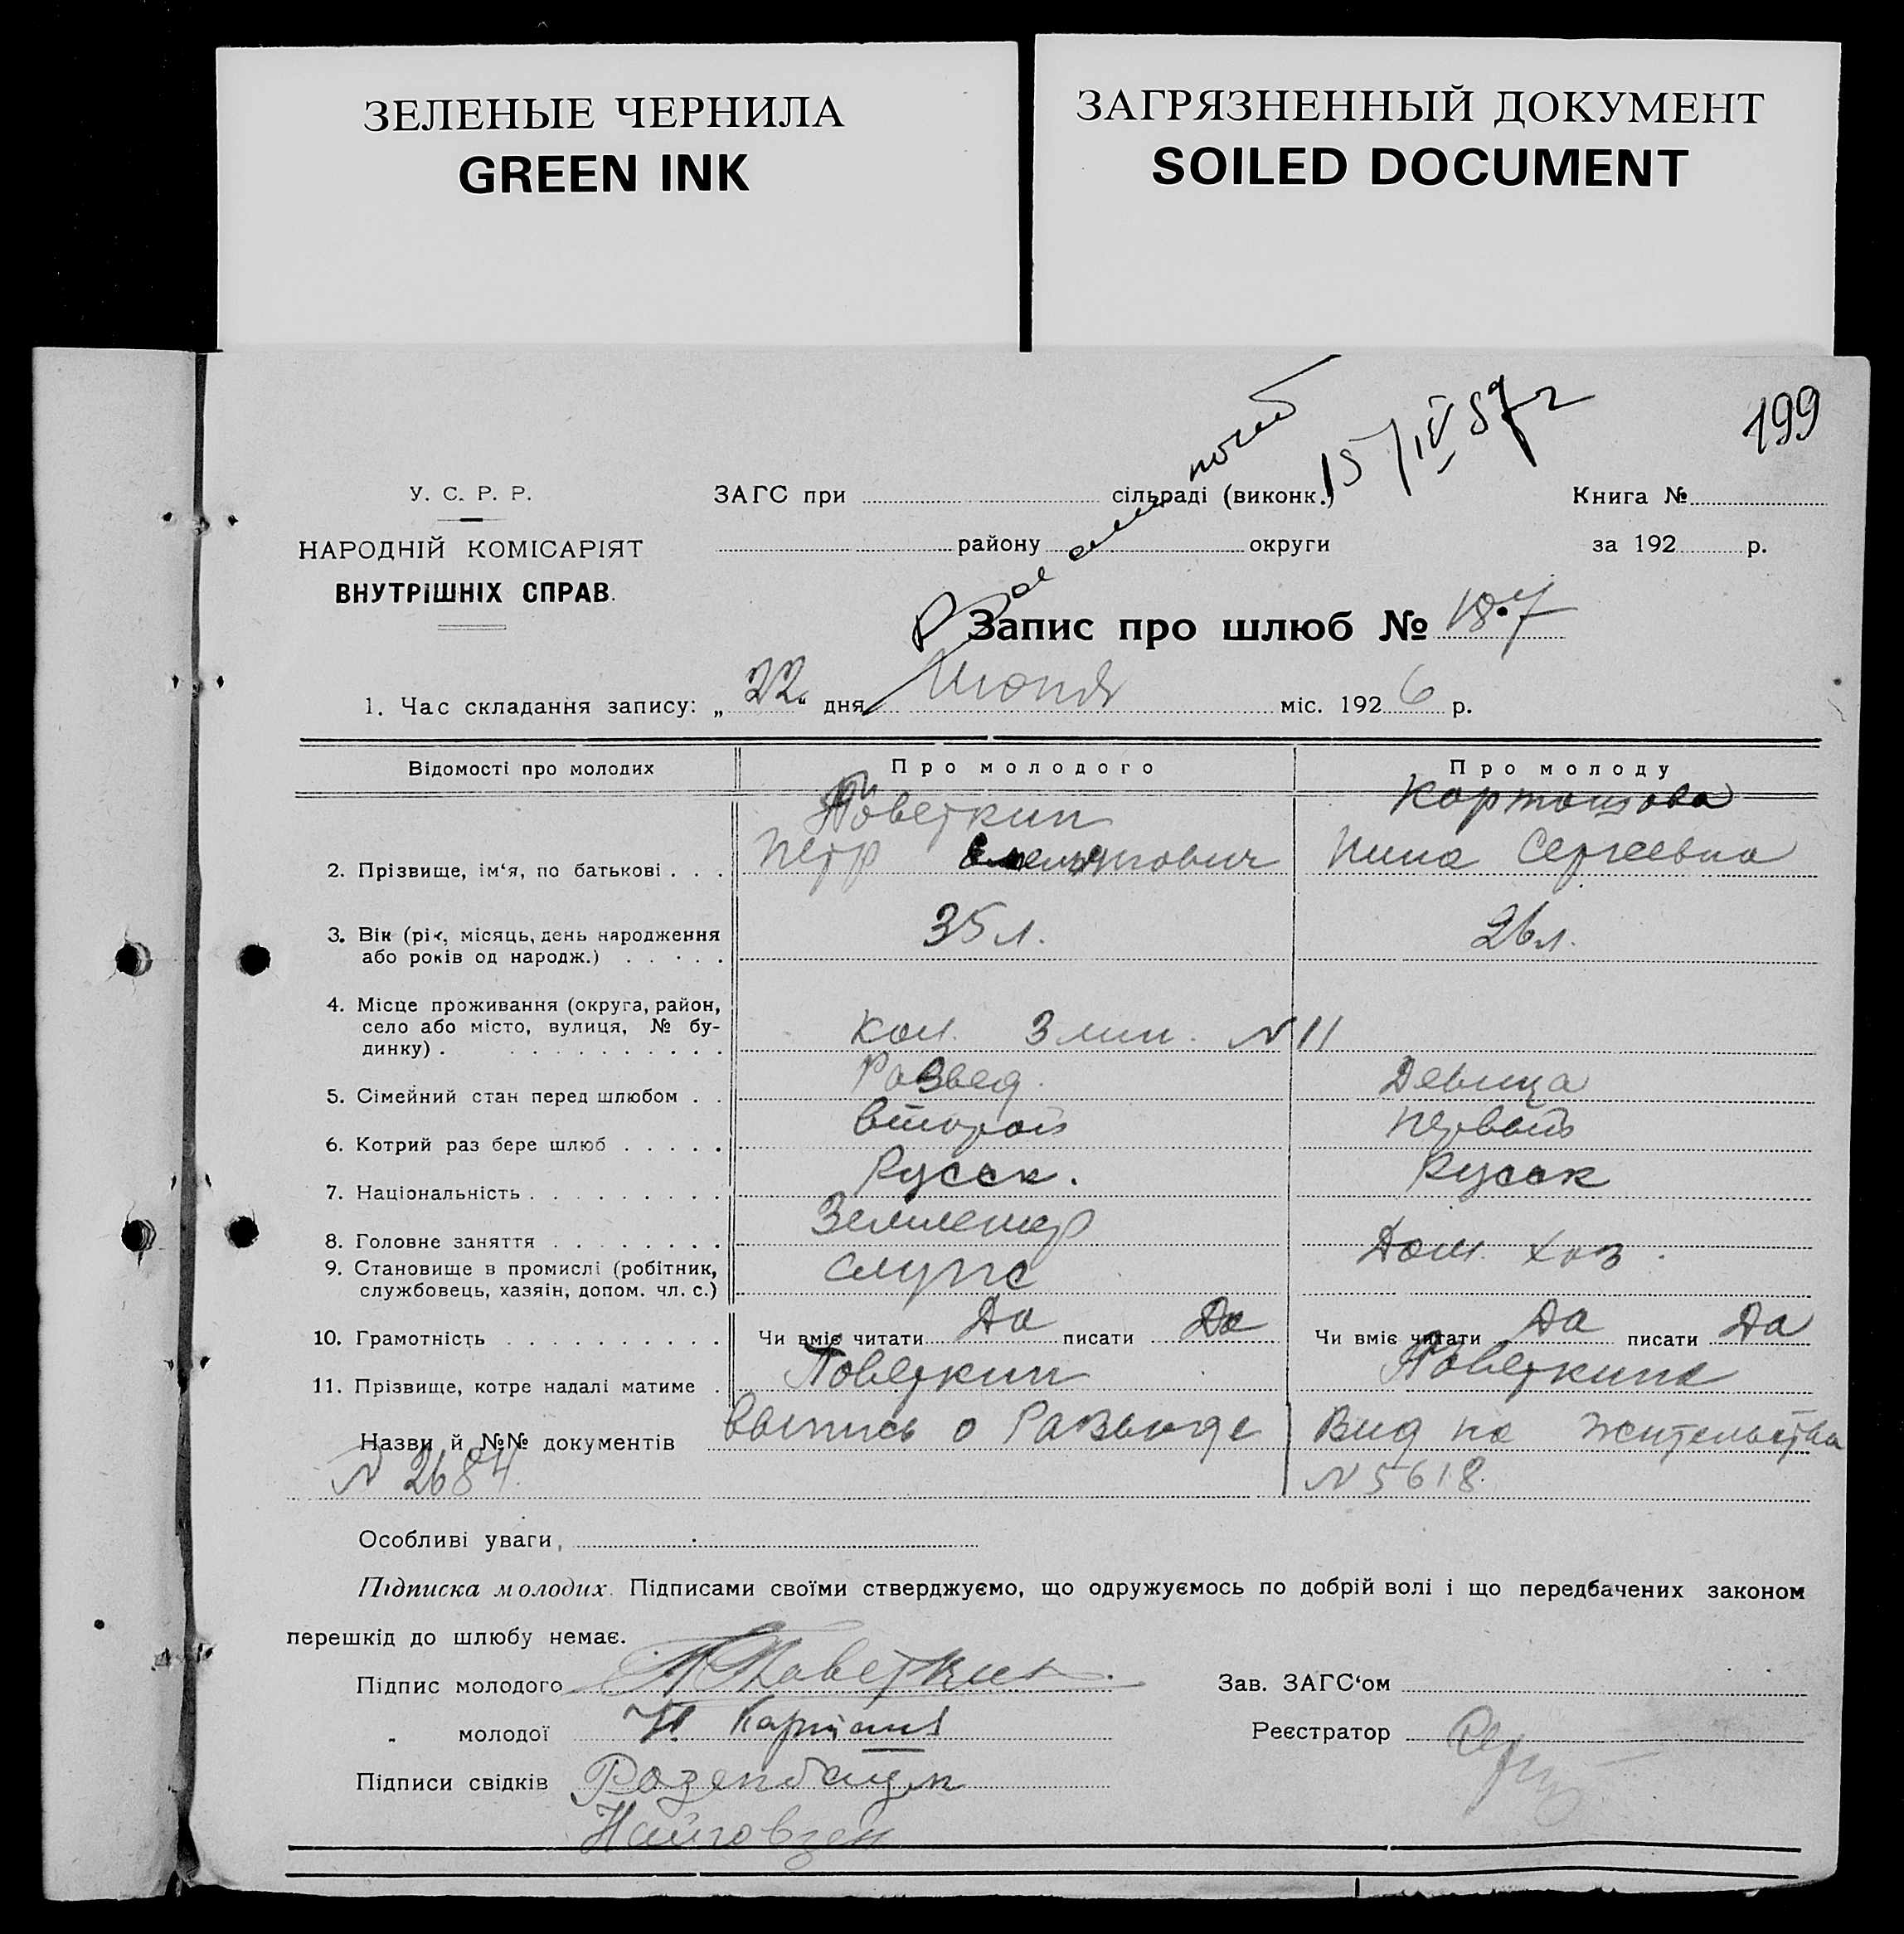 ЗЕЛЕНЫЕ ЧЕРНИЛА
GREEN INK
ЗАГРЯЗНЕННЫЙ ДОКУМЕНТ
SOILED DOCUMENT
199
15/IV 57 г
У. С. Р. Р.
НАРОДНІЙ КОМІСАРІЯТ
ВНУТРІШНІХ СПРАВ.
ЗАГС при сільраді (виконк.)
району округи
Книга №
за 192 р.
Запис про шлюб № 187
1. Час складання запису: „22“ дня Июня міс. 1926 р.
Відомості про молодих Про молодого Про молоду
Поветкин
2. Прізвище, ім‘я, по батькові . . . Петр Нина Сергеевна
3. Вік (рік, місяць, день народження
або років од народж.) . . . . . 35 л. 26 л.
4. Місце проживання (округа, район,
село або місто, вулиця, № бу-
динку) . . . . . . . . . . . Ком. 3 мин. N 11
5. Сімейний стан перед шлюбом . . Развед. Девица
6. Котрий раз бере шлюб . . . . . второй первый
7. Національність . . . . . . . . . Русск. Русск
8. Головне заняття . . . . . . . . Землемер Дом. хоз.
9. Становище в промислі (робітник,
службовець, хазяін, допом. чл. с.) служ
10. Грамотність . . . . . . . . . . Чи вміє читати Да писати Да Чи вміє читати Да писати Да
11. Прізвище, котре надалі матиме . Поветкин Поветкина
Назви й №№ документів Выпись о Разводе Вид на жительство
N 2684. N 5618.
Особливі уваги,
Підписка молодих. Підписами своїми стверджуємо, що одружуємось по добрій волі і що передбачених законом
перешкід до шлюбу немає.
Підпис молодого П Поветкин Зав. ЗАГС‘ом
„ молодої Реєстратор
Підписи свідків Розенбаум